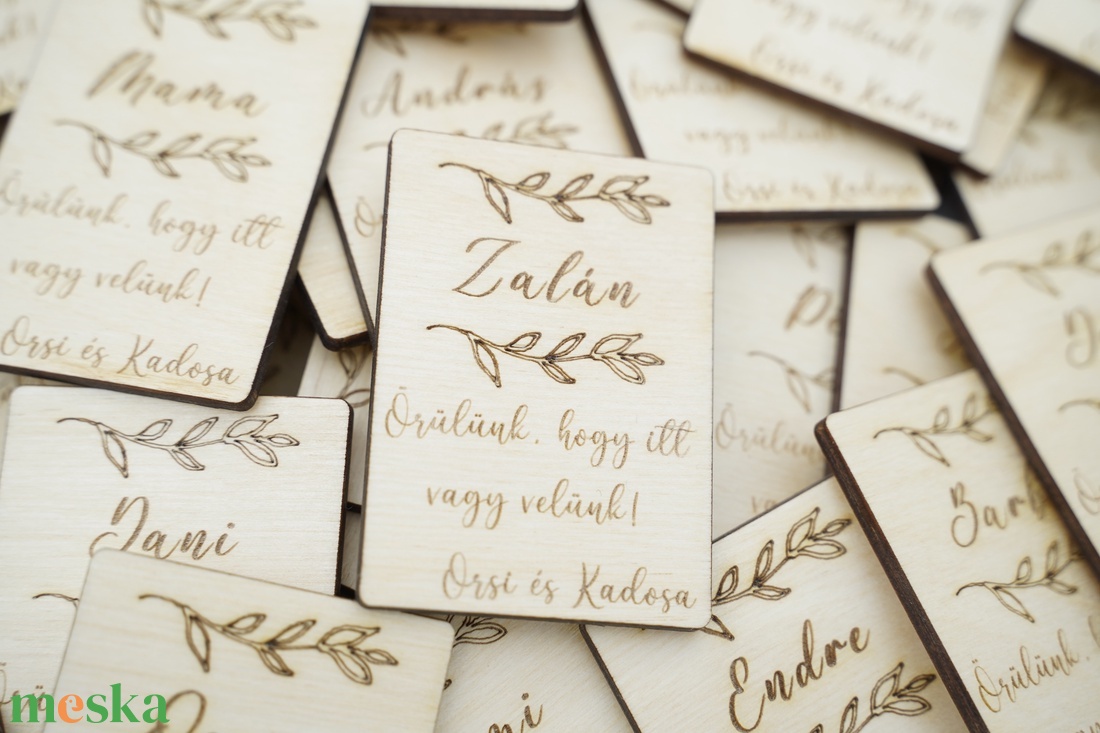 Mama
Örülünk, hogy itt
vagy velünk!
Orsi és Kadosa
András
vagy velünk!
Orsi és Kadosa
vagy velünk!
Orsi és Kadosa
Zalán
Örülünk, hogy itt
vagy velünk!
Orsi és Kadosa
Jani
Örülünk
Endre
Barb
Örülünk,
meska